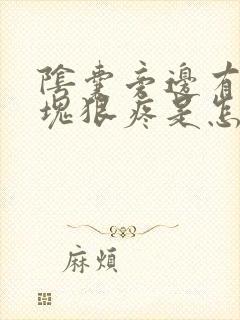 陰囊旁邊有
塊狠疼是怎
麻煩